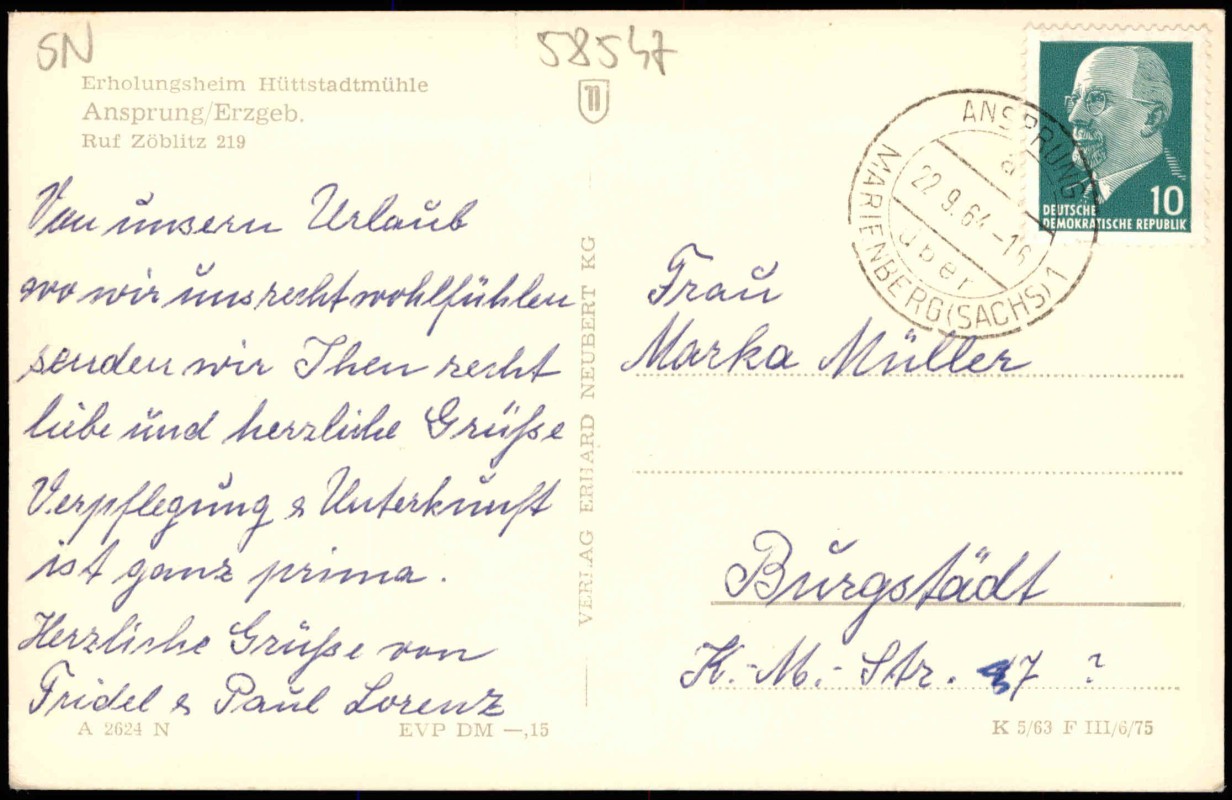 SN
58547
Erholungsheim Hüttstadtmühle
Ansprung/Erzgeb.
Ruf Zöblitz 219
n
Von unsern Urlaub
wo wir uns recht wohlfühlen
senden wir Ihen recht
liebe und herzliche Grüße
Verpflegung & Unterkunft
ist ganz prima.
Herzliche Grüße von
Fridel & Paul Lorenz
A 2624 N
EVP DM —,15
VERLAG ERHARD NEUBERT KG
ANSPRUNG
a
22.9.64-16
über
MARIENBERG (SACHS) 1
10
DEUTSCHE
DEMOKRATISCHE REPUBLIK
Frau
Marka Müller
Burgstädt
K.-M.-Str. 7 ?
K 5/63 F III/6/75